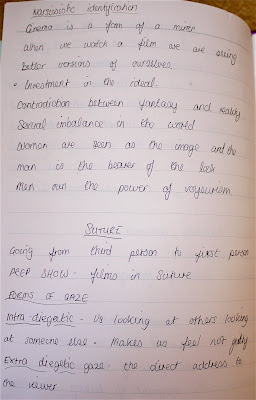 Narssistic identification
Cinema is a form of a mirror
when we watch a film we are seeing
better versions of ourselves.
• Investment in the ideal.
Contradiction between fantasy and reality
Sexual imbalance in the world
Women are seen as the image and the
man is the bearer of the look
Men own the power of voyeurism.
SUTURE
Going from third person to first person
PEEP SHOW - films in Suture
FORMS OF GAZE
Intra diegetic - Us looking at others looking
at someone else - makes us feel not guilty
Extra diegetic gaze - the direct address to
the viewer